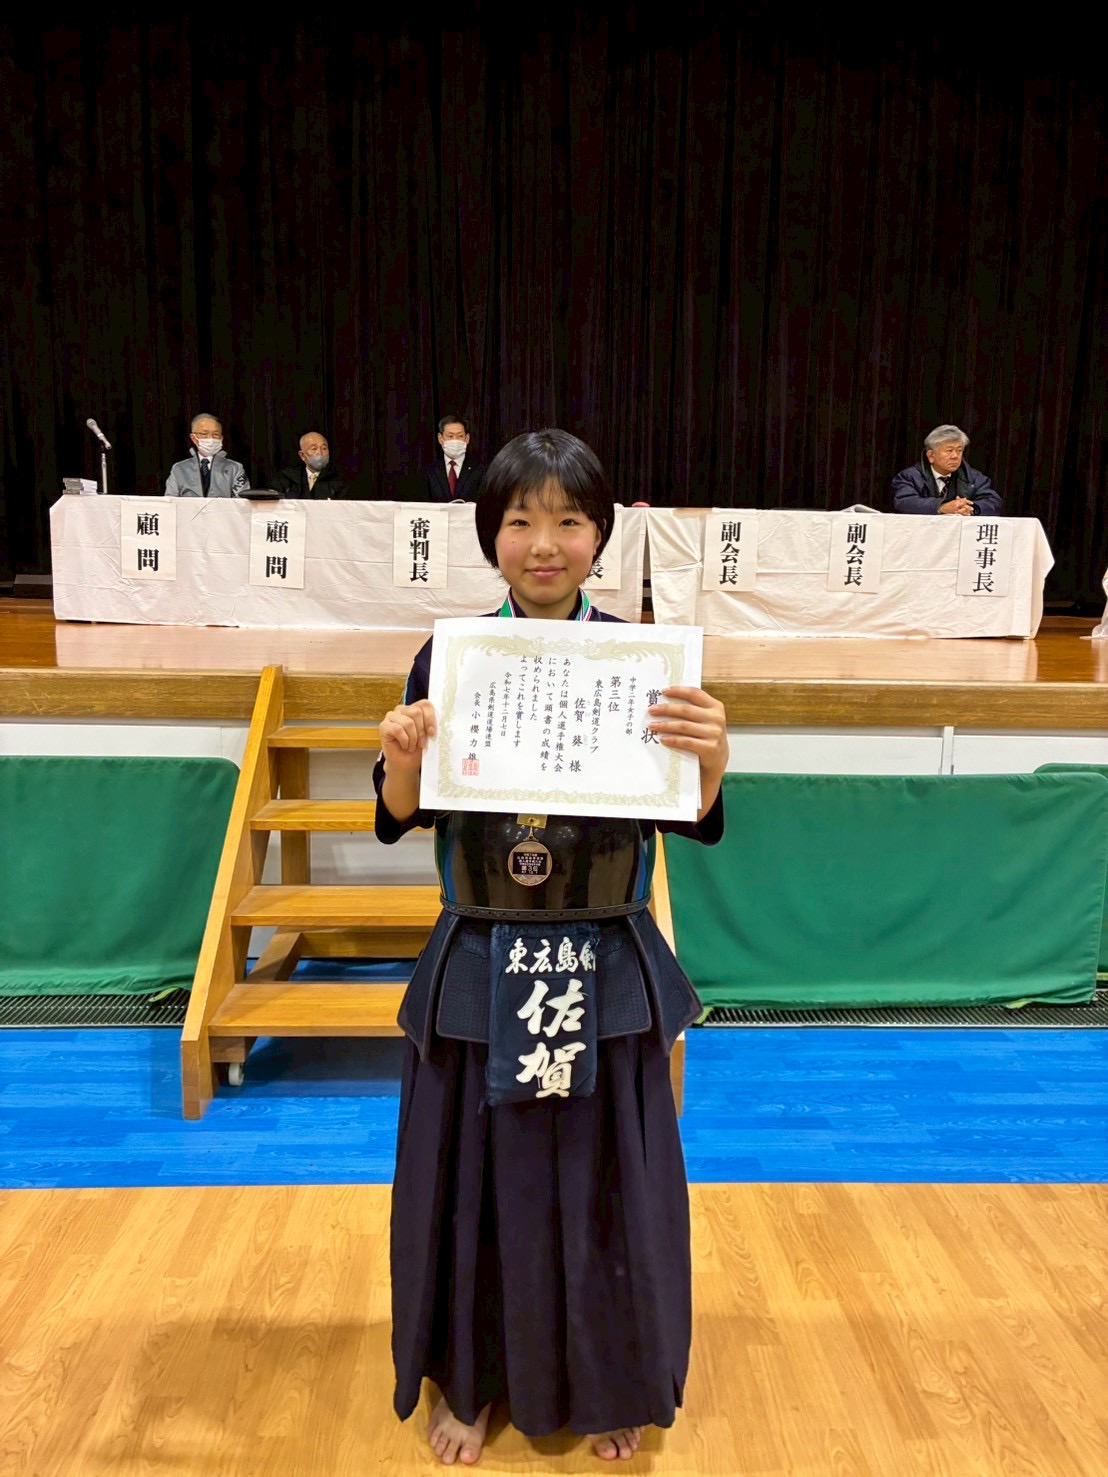 顧問
顧問
審判長
長
副会長
副会長
理事長
賞状
中学二年女子の部
第三位
東広島剣道クラブ
佐賀 葵 様
あなたは個人選手権大会
において頭書の成績を
収められました
よってこれを賞します
令和七年十二月七日
広島県剣道道場連盟
会長 小櫻力雄
第3位
東広島剣
佐賀